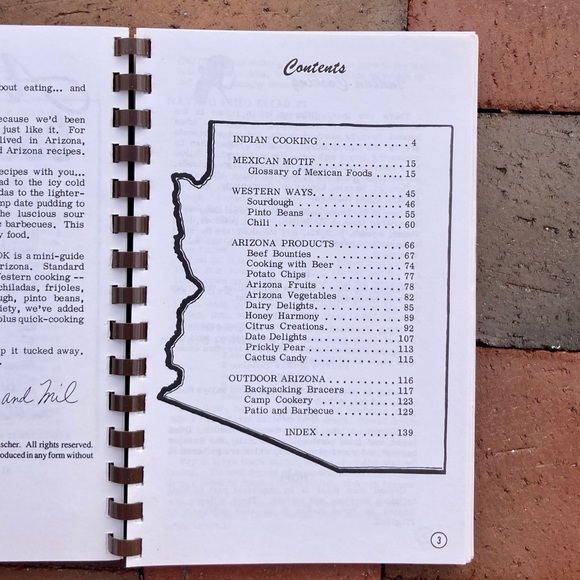 bout eating... and
ecause we'd been
just like it. For
lived in Arizona,
d Arizona recipes.
ecipes with you...
ad to the icy cold
das to the lighter-
mp date pudding to
he luscious sour
c barbecues. This
y food.
OK is a mini-guide
rizona. Standard
estern cooking --
chiladas, frijoles,
ugh, pinto beans,
iety, we've added
plus quick-cooking
p it tucked away.
and Mil
scher. All rights reserved.
oduced in any form without
Contents
INDIAN COOKING . . . . . . . . . . . . . 4
MEXICAN MOTIF . . . . . . . . . . . . . 15
Glossary of Mexican Foods . . . . . 15
WESTERN WAYS. . . . . . . . . . . . . . 45
Sourdough . . . . . . . . . . . . . . . 46
Pinto Beans . . . . . . . . . . . . . . 55
Chili . . . . . . . . . . . . . . . . . 60
ARIZONA PRODUCTS . . . . . . . . . . . 66
Beef Bounties . . . . . . . . . . . . . 67
Cooking with Beer . . . . . . . . . . . 74
Potato Chips . . . . . . . . . . . . . 77
Arizona Fruits . . . . . . . . . . . . 78
Arizona Vegetables . . . . . . . . . . 82
Dairy Delights. . . . . . . . . . . . . 85
Honey Harmony . . . . . . . . . . . . . 89
Citrus Creations. . . . . . . . . . . . 92
Date Delights . . . . . . . . . . . . . 107
Prickly Pear . . . . . . . . . . . . . 113
Cactus Candy . . . . . . . . . . . . . 115
OUTDOOR ARIZONA . . . . . . . . . . . . 116
Backpacking Bracers . . . . . . . . . . 117
Camp Cookery . . . . . . . . . . . . . 123
Patio and Barbecue . . . . . . . . . . 129
INDEX . . . . . . . . . . . . . . . . . 139
3